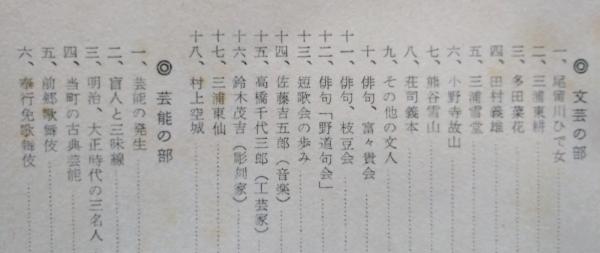 ◎ 文芸の部
一、尾箇川ひで女
二、三浦東耕
三、多田菜花
四、田村義雄
五、三浦雪堂
六、小野寺故山
七、熊谷雪山
八、荘司義本
九、その他の文人
十、俳句、富々貴会
十一、俳句、枝豆会
十二、俳句「野道句会」
十三、短歌会の歩み
十四、佐藤吉五郎（音楽）
十五、高橋千代三郎（工芸家）
十六、鈴木茂吉（彫刻家）
十七、三浦東仙
十八、村上空城
◎ 芸能の部
一、芸能の発生
二、盲人と三味線
三、明治、大正時代の三名人
四、当町の古典芸能
五、前郷歌舞伎
六、奉行免歌舞伎